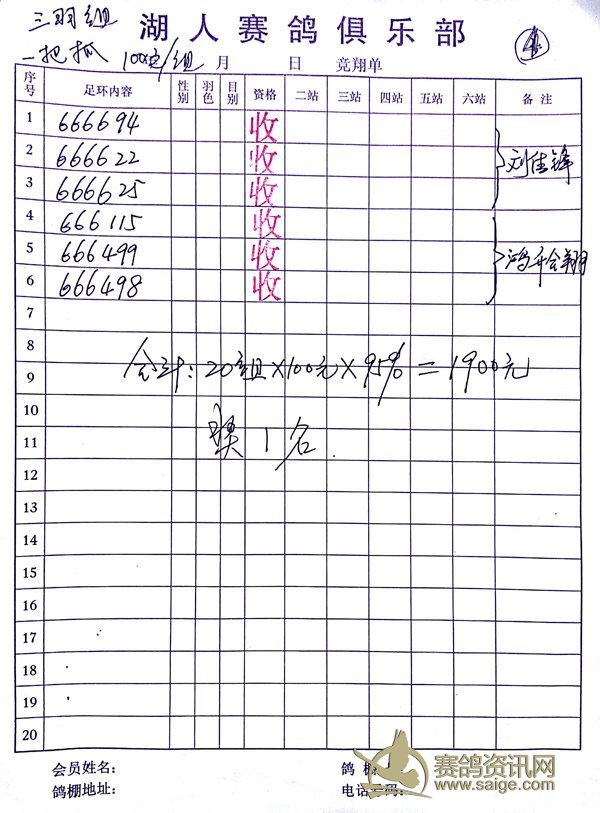 三羽组
湖人赛鸽俱乐部
④
一把抓 100元/组 月 日 竞翔单
序号 足环内容 性别 羽色 目别 资格 二站 三站 四站 五站 六站 备注
1 666694 收
2 666622 收 刘佳锋
3 666625 收
4 666115 收
5 666499 收 鸿升会翔
6 666498 收
7
8
合计:20组×100元×95%=1900元
9
10
奖1名.
11
12
13
14
15
16
17
18
19
20
会员姓名: 鸽棚
鸽棚地址: 电话号码:
赛鸽资讯网
www.saige.com